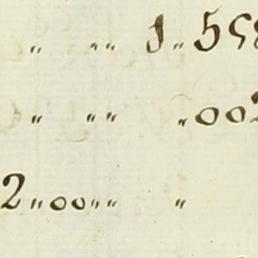 „ „„ 1 „ 598
„ „„ „ 002
2 „ 00 „„ „